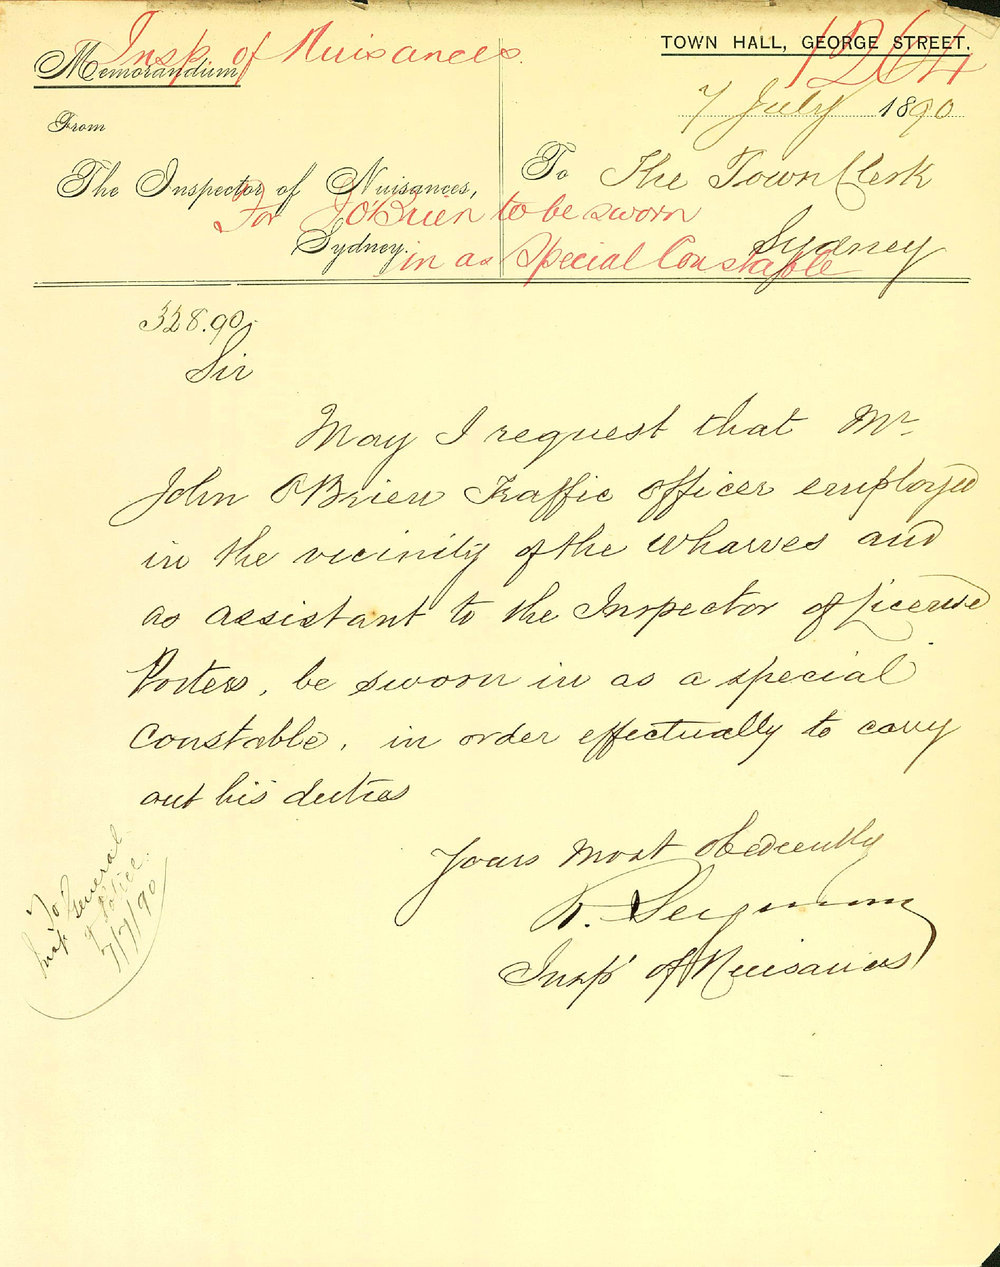 Insp. of Nuisances.
Memorandum
TOWN HALL, GEORGE STREET.
1264
7 July 1890
From
The Inspector of Nuisances,
Sydney.
To The Town Clerk
Sydney
For J O'Brien to be sworn
in as Special Constable
328.90.
Sir
May I request that Mr.
John O'Brien Traffic Officer employed
in the vicinity of the Wharves and
as assistant to the Inspector of License
Porters, be sworn in as a special
constable, in order effectually to carry
out his duties
Yours most obediently
R. Seymour
Insp. of Nuisances
To
Insp. General
of Police.
7/7/90